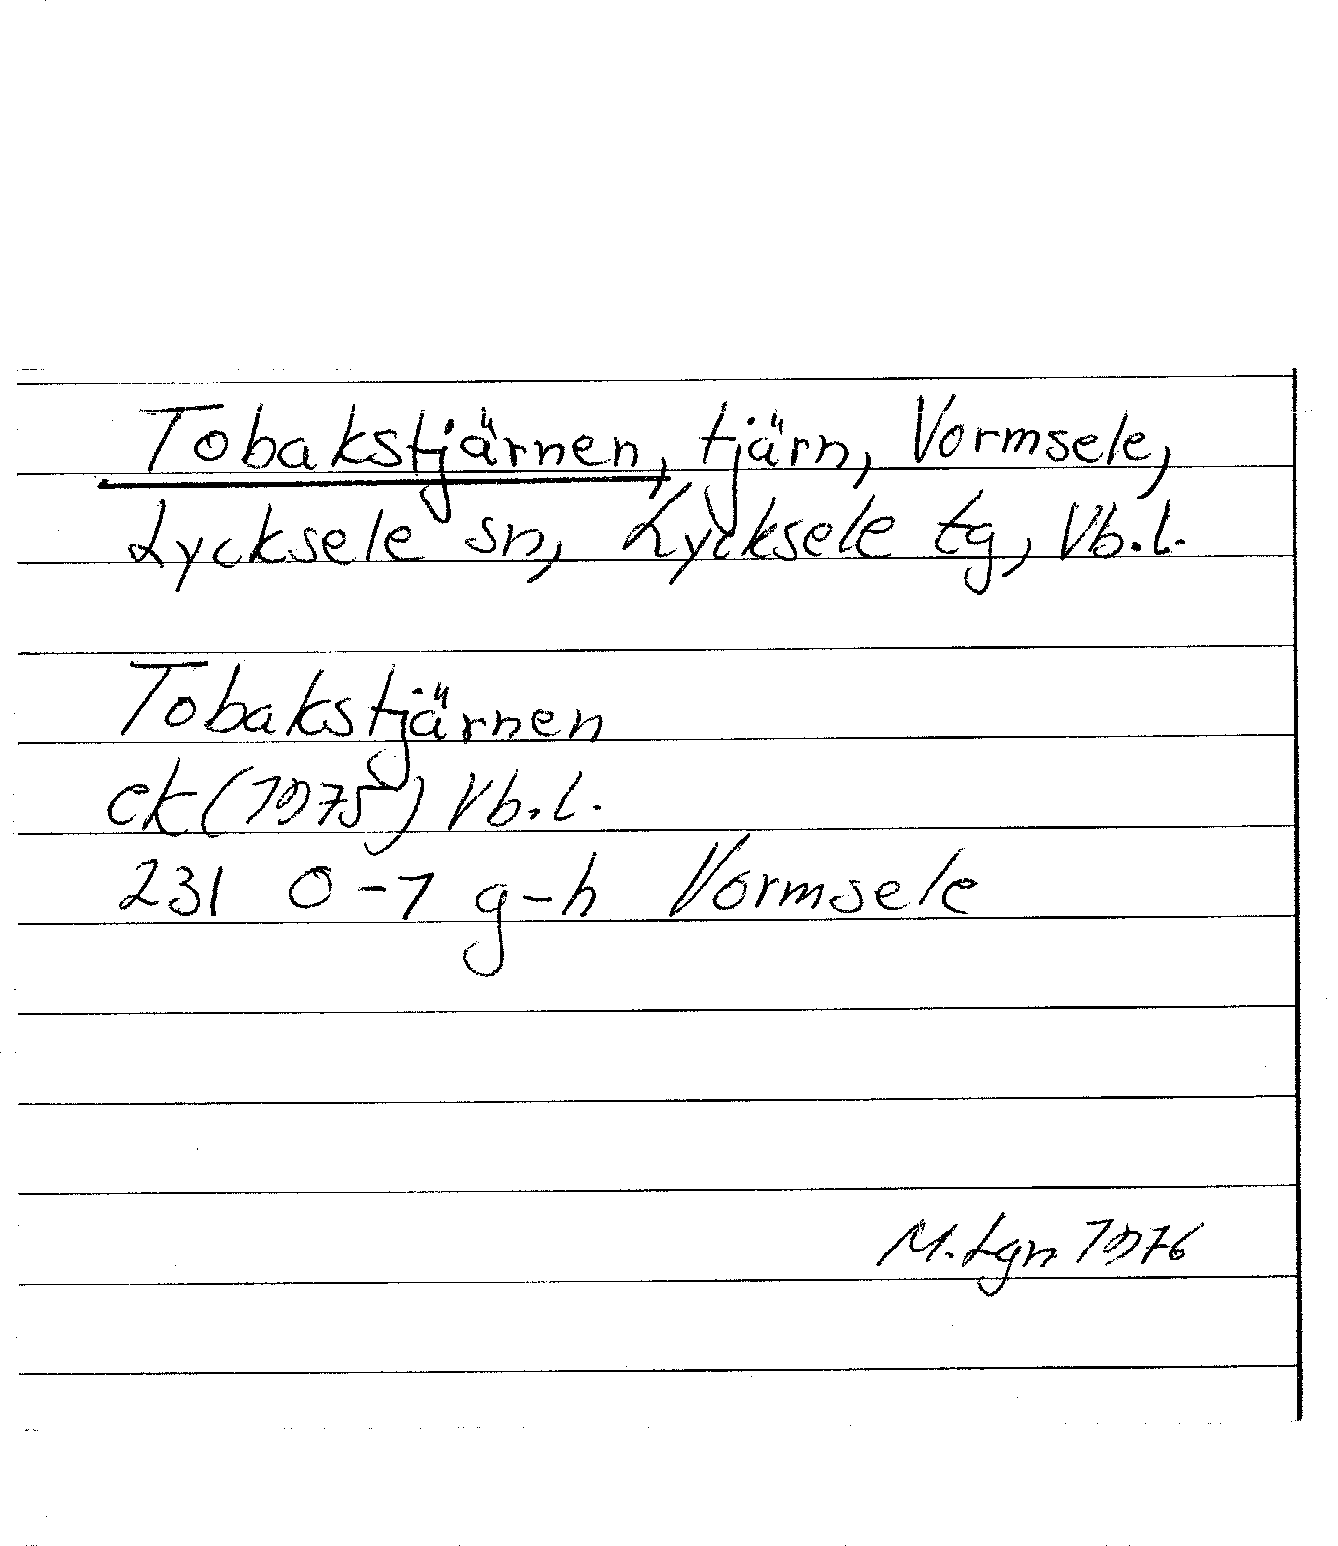 Tobakstjärnen, tjärn, Vormsele,
Lycksele sn, Lycksele tg, Vb.l.
Tobakstjärnen
ek (1975) Vb.l.
231 0-1 g-h Vormsele
M. Lgn 1976